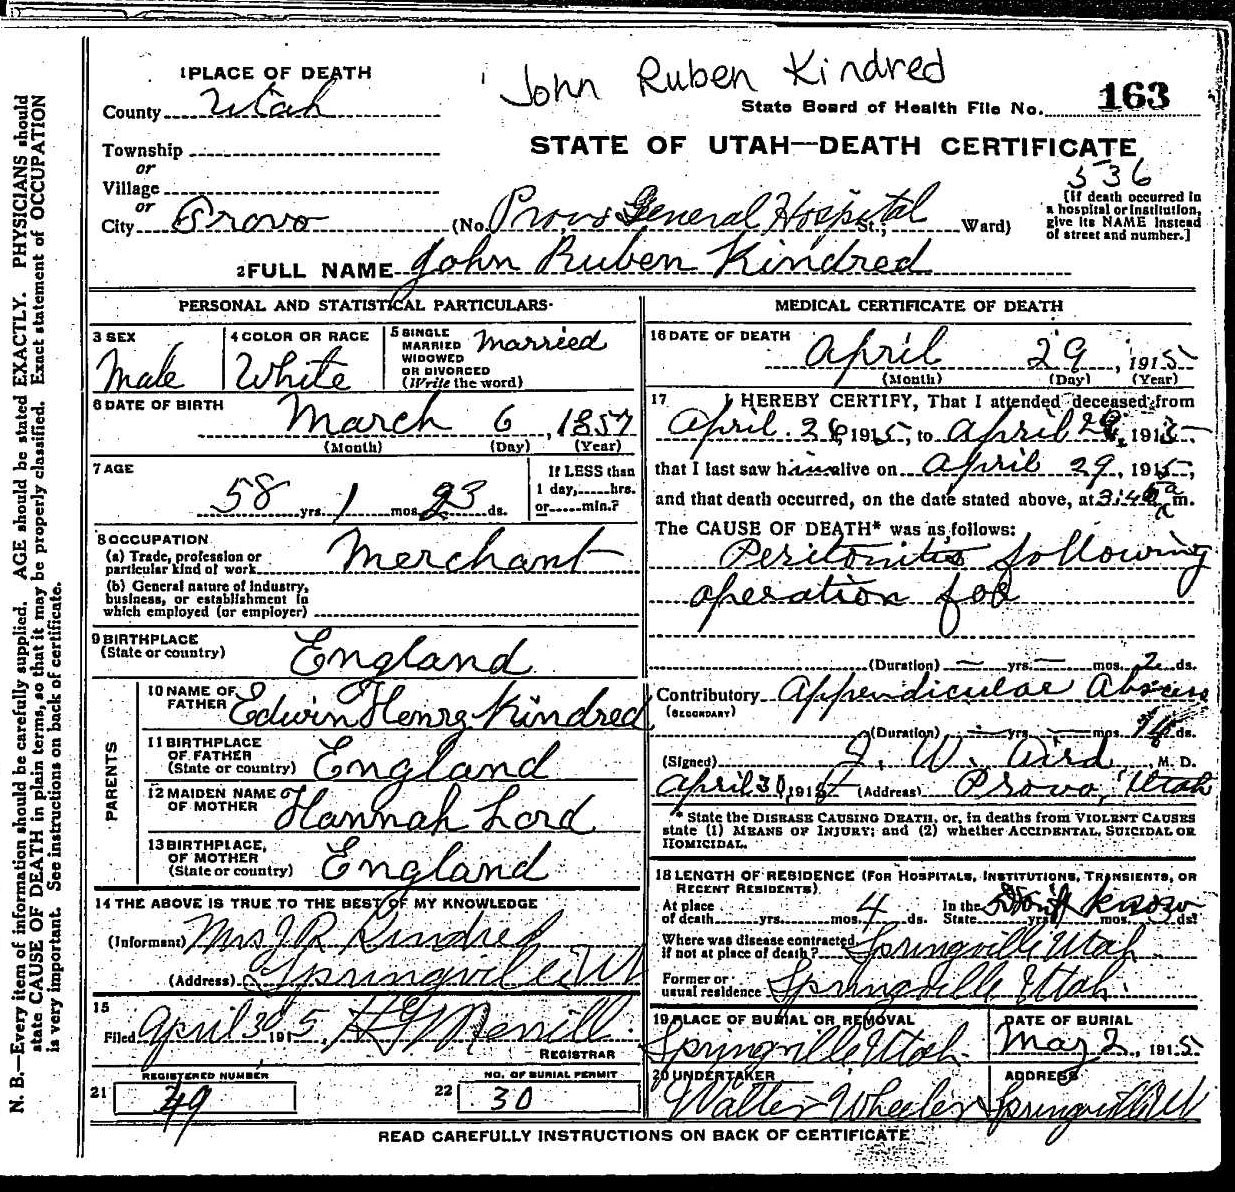 John Ruben Kindred
1 PLACE OF DEATH
County Utah
State Board of Health File No. 163
Township
or
STATE OF UTAH—DEATH CERTIFICATE
536
Village
or
City Provo (No. Provo General Hospital St.; Ward)
[If death occurred in
a hospital or institution,
give its NAME instead
of street and number.]
2 FULL NAME John Ruben Kindred
PERSONAL AND STATISTICAL PARTICULARS
3 SEX
Male
4 COLOR OR RACE
White
5 SINGLE
MARRIED
WIDOWED
OR DIVORCED
(Write the word)
Married
6 DATE OF BIRTH
March 6, 1857
(Month) (Day) (Year)
7 AGE
58 yrs. 1 mos. 23 ds.
If LESS than
1 day,.....hrs.
or.....min.?
8 OCCUPATION
(a) Trade, profession or
particular kind of work Merchant
(b) General nature of industry,
business, or establishment in
which employed (or employer)
9 BIRTHPLACE
(State or country) England
PARENTS
10 NAME OF
FATHER Edwin Henry Kindred
11 BIRTHPLACE
OF FATHER
(State or country) England
12 MAIDEN NAME
OF MOTHER Hannah Lord
13 BIRTHPLACE,
OF MOTHER
(State or country) England
14 THE ABOVE IS TRUE TO THE BEST OF MY KNOWLEDGE
(Informant) Mrs J R Kindred
(Address) Springville Ut
15
Filed April 30 1915, H G Merrill
REGISTRAR
REGISTERED NUMBER
21 49
NO. OF BURIAL PERMIT
22 30
MEDICAL CERTIFICATE OF DEATH
16 DATE OF DEATH
April 29, 1915
(Month) (Day) (Year)
17 I HEREBY CERTIFY, That I attended deceased from
April 26, 1915, to April 29, 1915
that I last saw him alive on April 29, 1915,
and that death occurred, on the date stated above, at 3:40 a m.
The CAUSE OF DEATH* was as follows:
Peritonitis following
operation for
(Duration) — yrs. — mos. 2 ds.
Contributory Appendicular Abscess
(SECONDARY)
(Duration) — yrs. — mos. ds.
(Signed) J. W. Aird, M. D.
April 30, 191 (Address) Provo, Utah
* State the DISEASE CAUSING DEATH, or, in deaths from VIOLENT CAUSES
state (1) MEANS OF INJURY; and (2) whether ACCIDENTAL, SUICIDAL OR
HOMICIDAL.
18 LENGTH OF RESIDENCE (FOR HOSPITALS, INSTITUTIONS, TRANSIENTS, OR
RECENT RESIDENTS)
At place
of death yrs. mos. 4 ds. In the
State Don't know yrs. ds.
Where was disease contracted,
if not at place of death? Springville Utah
Former or
usual residence Springville Utah
19 PLACE OF BURIAL OR REMOVAL
Springville Utah
DATE OF BURIAL
May 2, 1915
20 UNDERTAKER
Walter Wheeler
ADDRESS
Springville Ut
READ CAREFULLY INSTRUCTIONS ON BACK OF CERTIFICATE
N. B.—Every item of information should be carefully supplied. AGE should be stated EXACTLY. PHYSICIANS should
state CAUSE OF DEATH in plain terms, so that it may be properly classified. Exact statement of OCCUPATION
is very important. See instructions on back of certificate.